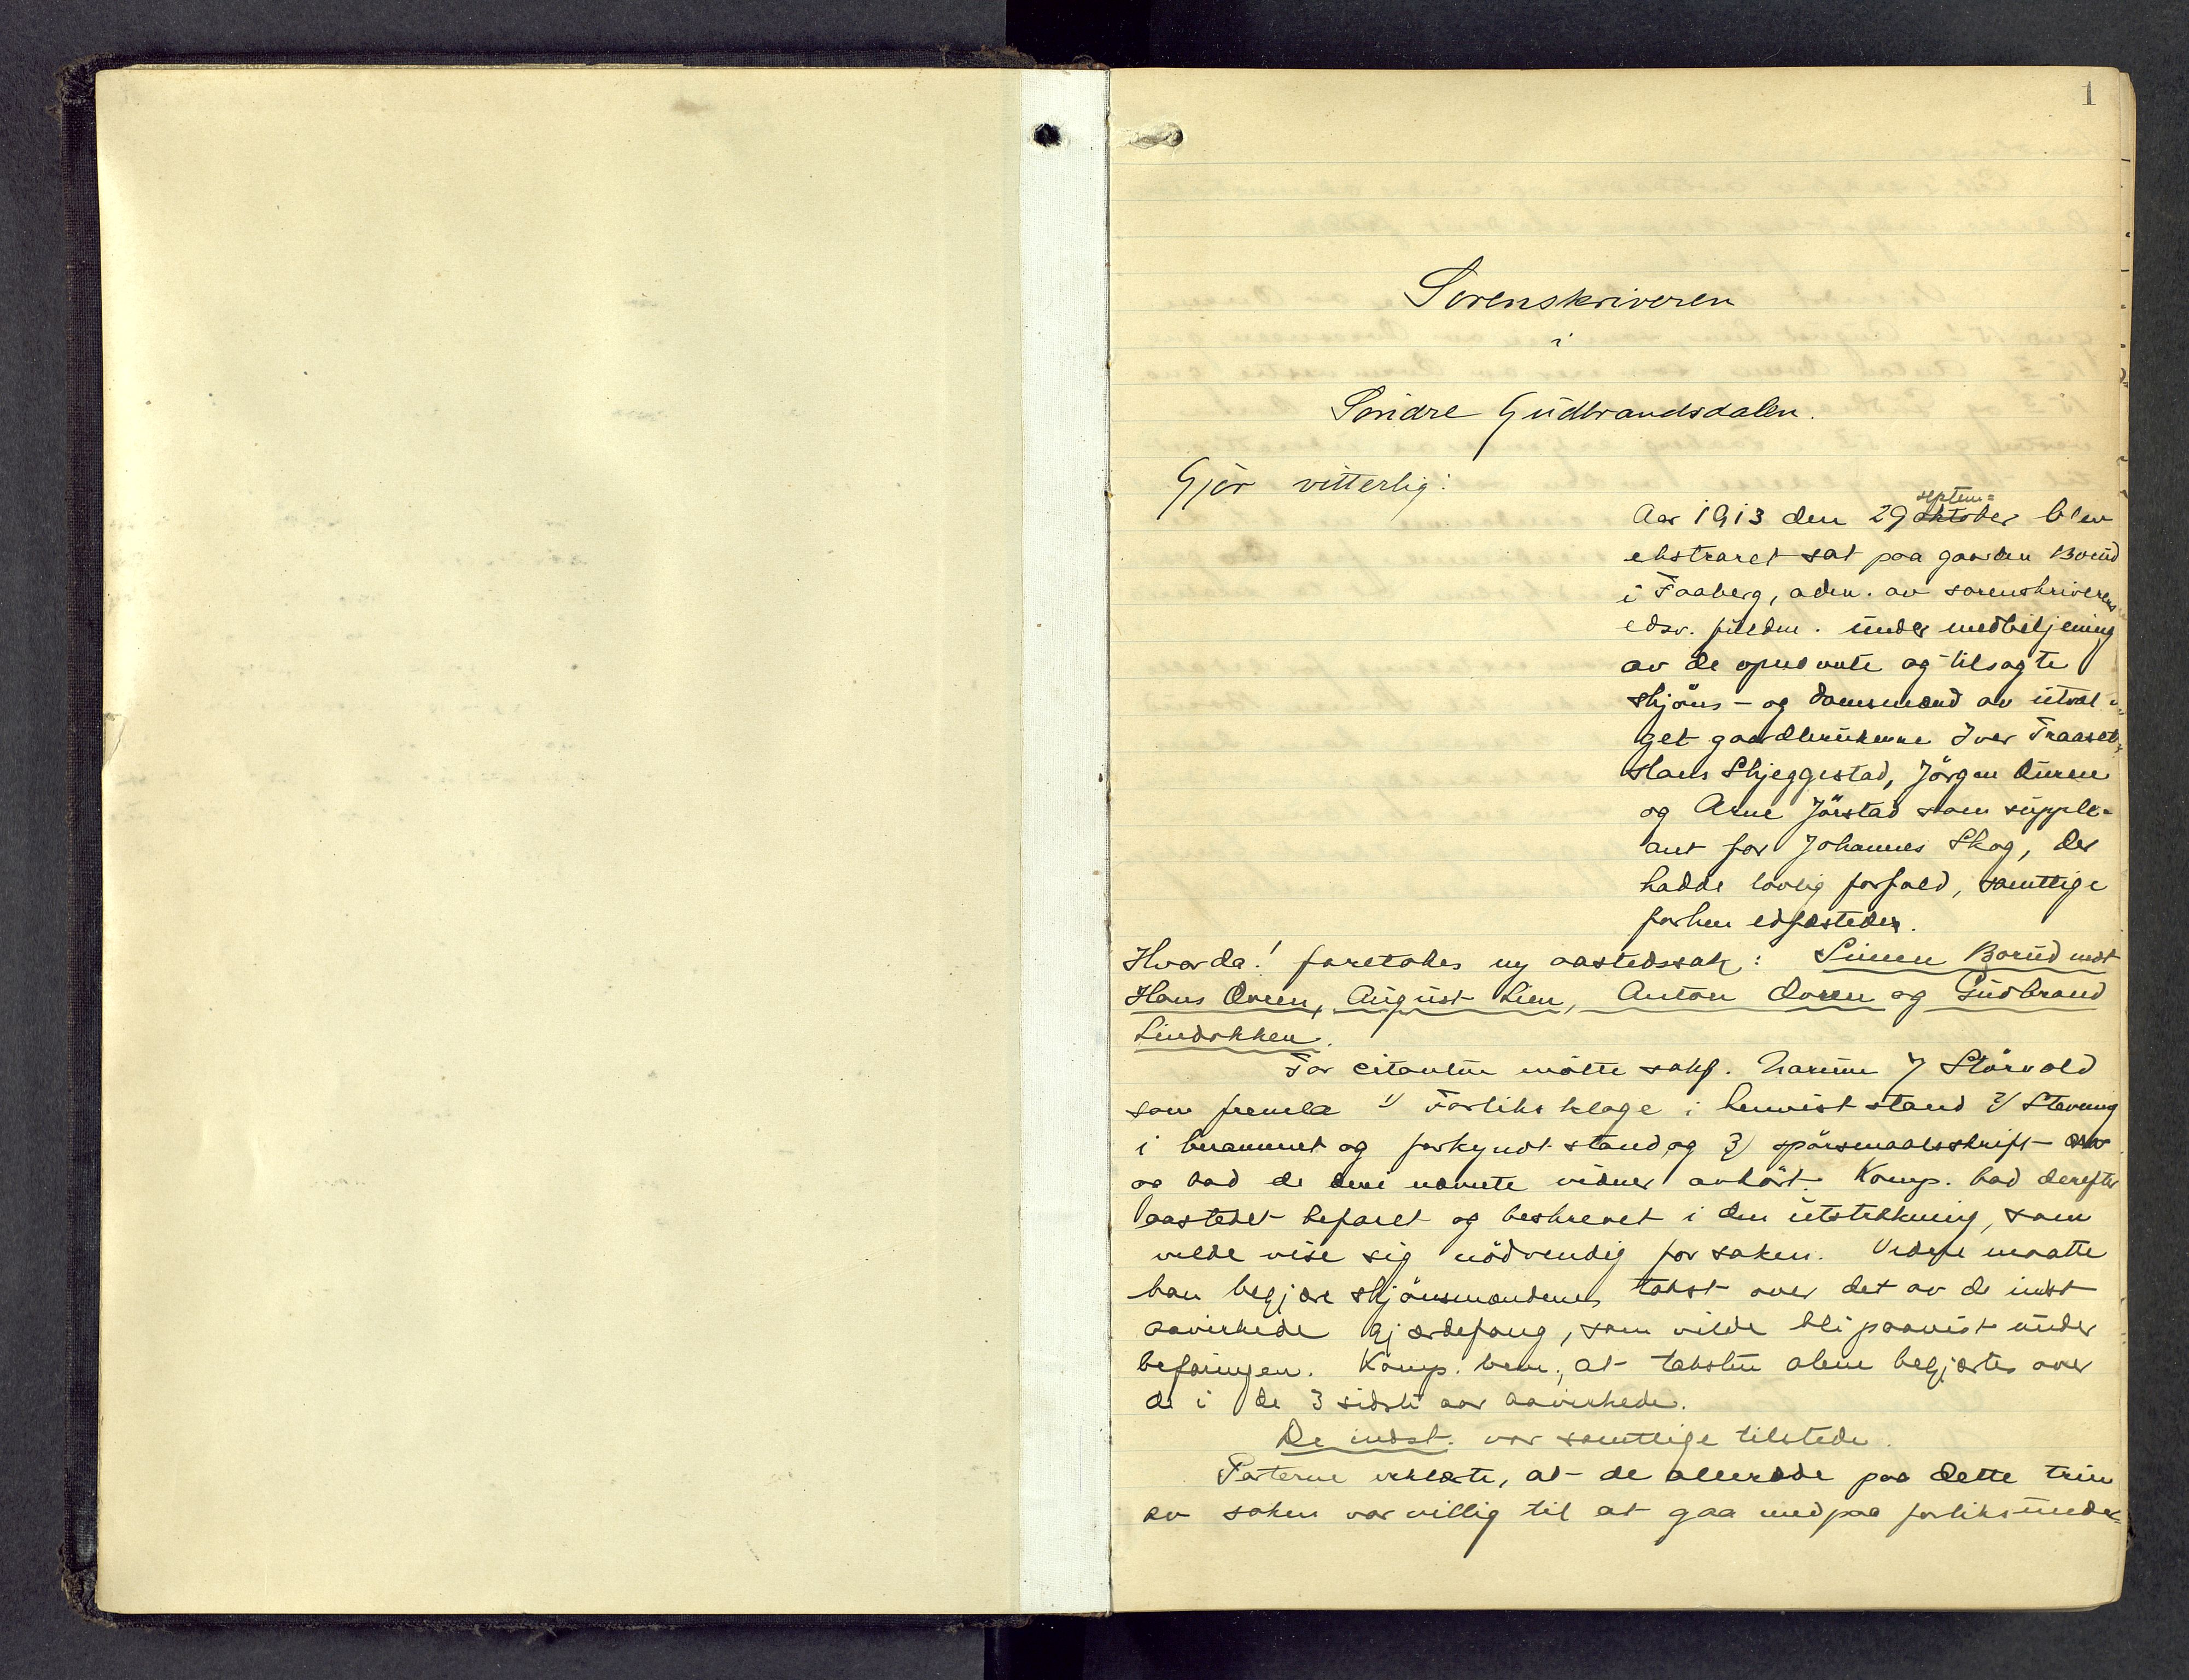 1
Sorenskriveren
i
Söndre Gudbrandsdalen.
Gjör vitterlig:
septem=
Aar 1913 den 29 oktober blev
ekstraret sat paa gaarden Borud
i Faaberg, adm. av sorenskriverens
edsv. fuldm. under medbetjening
av de opnævnte og tilsagte
skjöns- og domsmænd av utval-
get gaardbrukerne Iver Traaset,
Hans Skjeggestad, Jörgen Kuren
og Arne Jörstad som supple-
ant for Johannes Skog, der
hadde lovlig forfald, samtlige
forhen edfæstedes.
Hvorda! foretokes ny aastedssak: Simen Borud mot
Hans Ovren, August Lien, Anton Ovren og Gudbrand
Lindokken.
For citanten mötte sakf. Harum J Störvold
som fremla 1/ Forliksklage i henvist stand 2/ Stevning
i berammet og forkyndt stand og 3/ spörsmaalsskrift
og bad de deri nævnte vidner avhört. Komp. bad derefter
aastedet befaret og beskrevet i den utstrekkning, som
vilde vise sig nödvendig for saken. Videre maatte
han begjære skjönsmændenes takst over det av de indst
aavirkede gjærdefang, som vilde bli paavist under
befaringen. Komp. bem., at taksten alene begjærtes over
de i de 3 sidste aar aavirkede.
De indst. var samtlige tilstede.
Parterne erklærte, at de allerede paa dette trin
av saken var villig til at gaa med paa forliksunder-